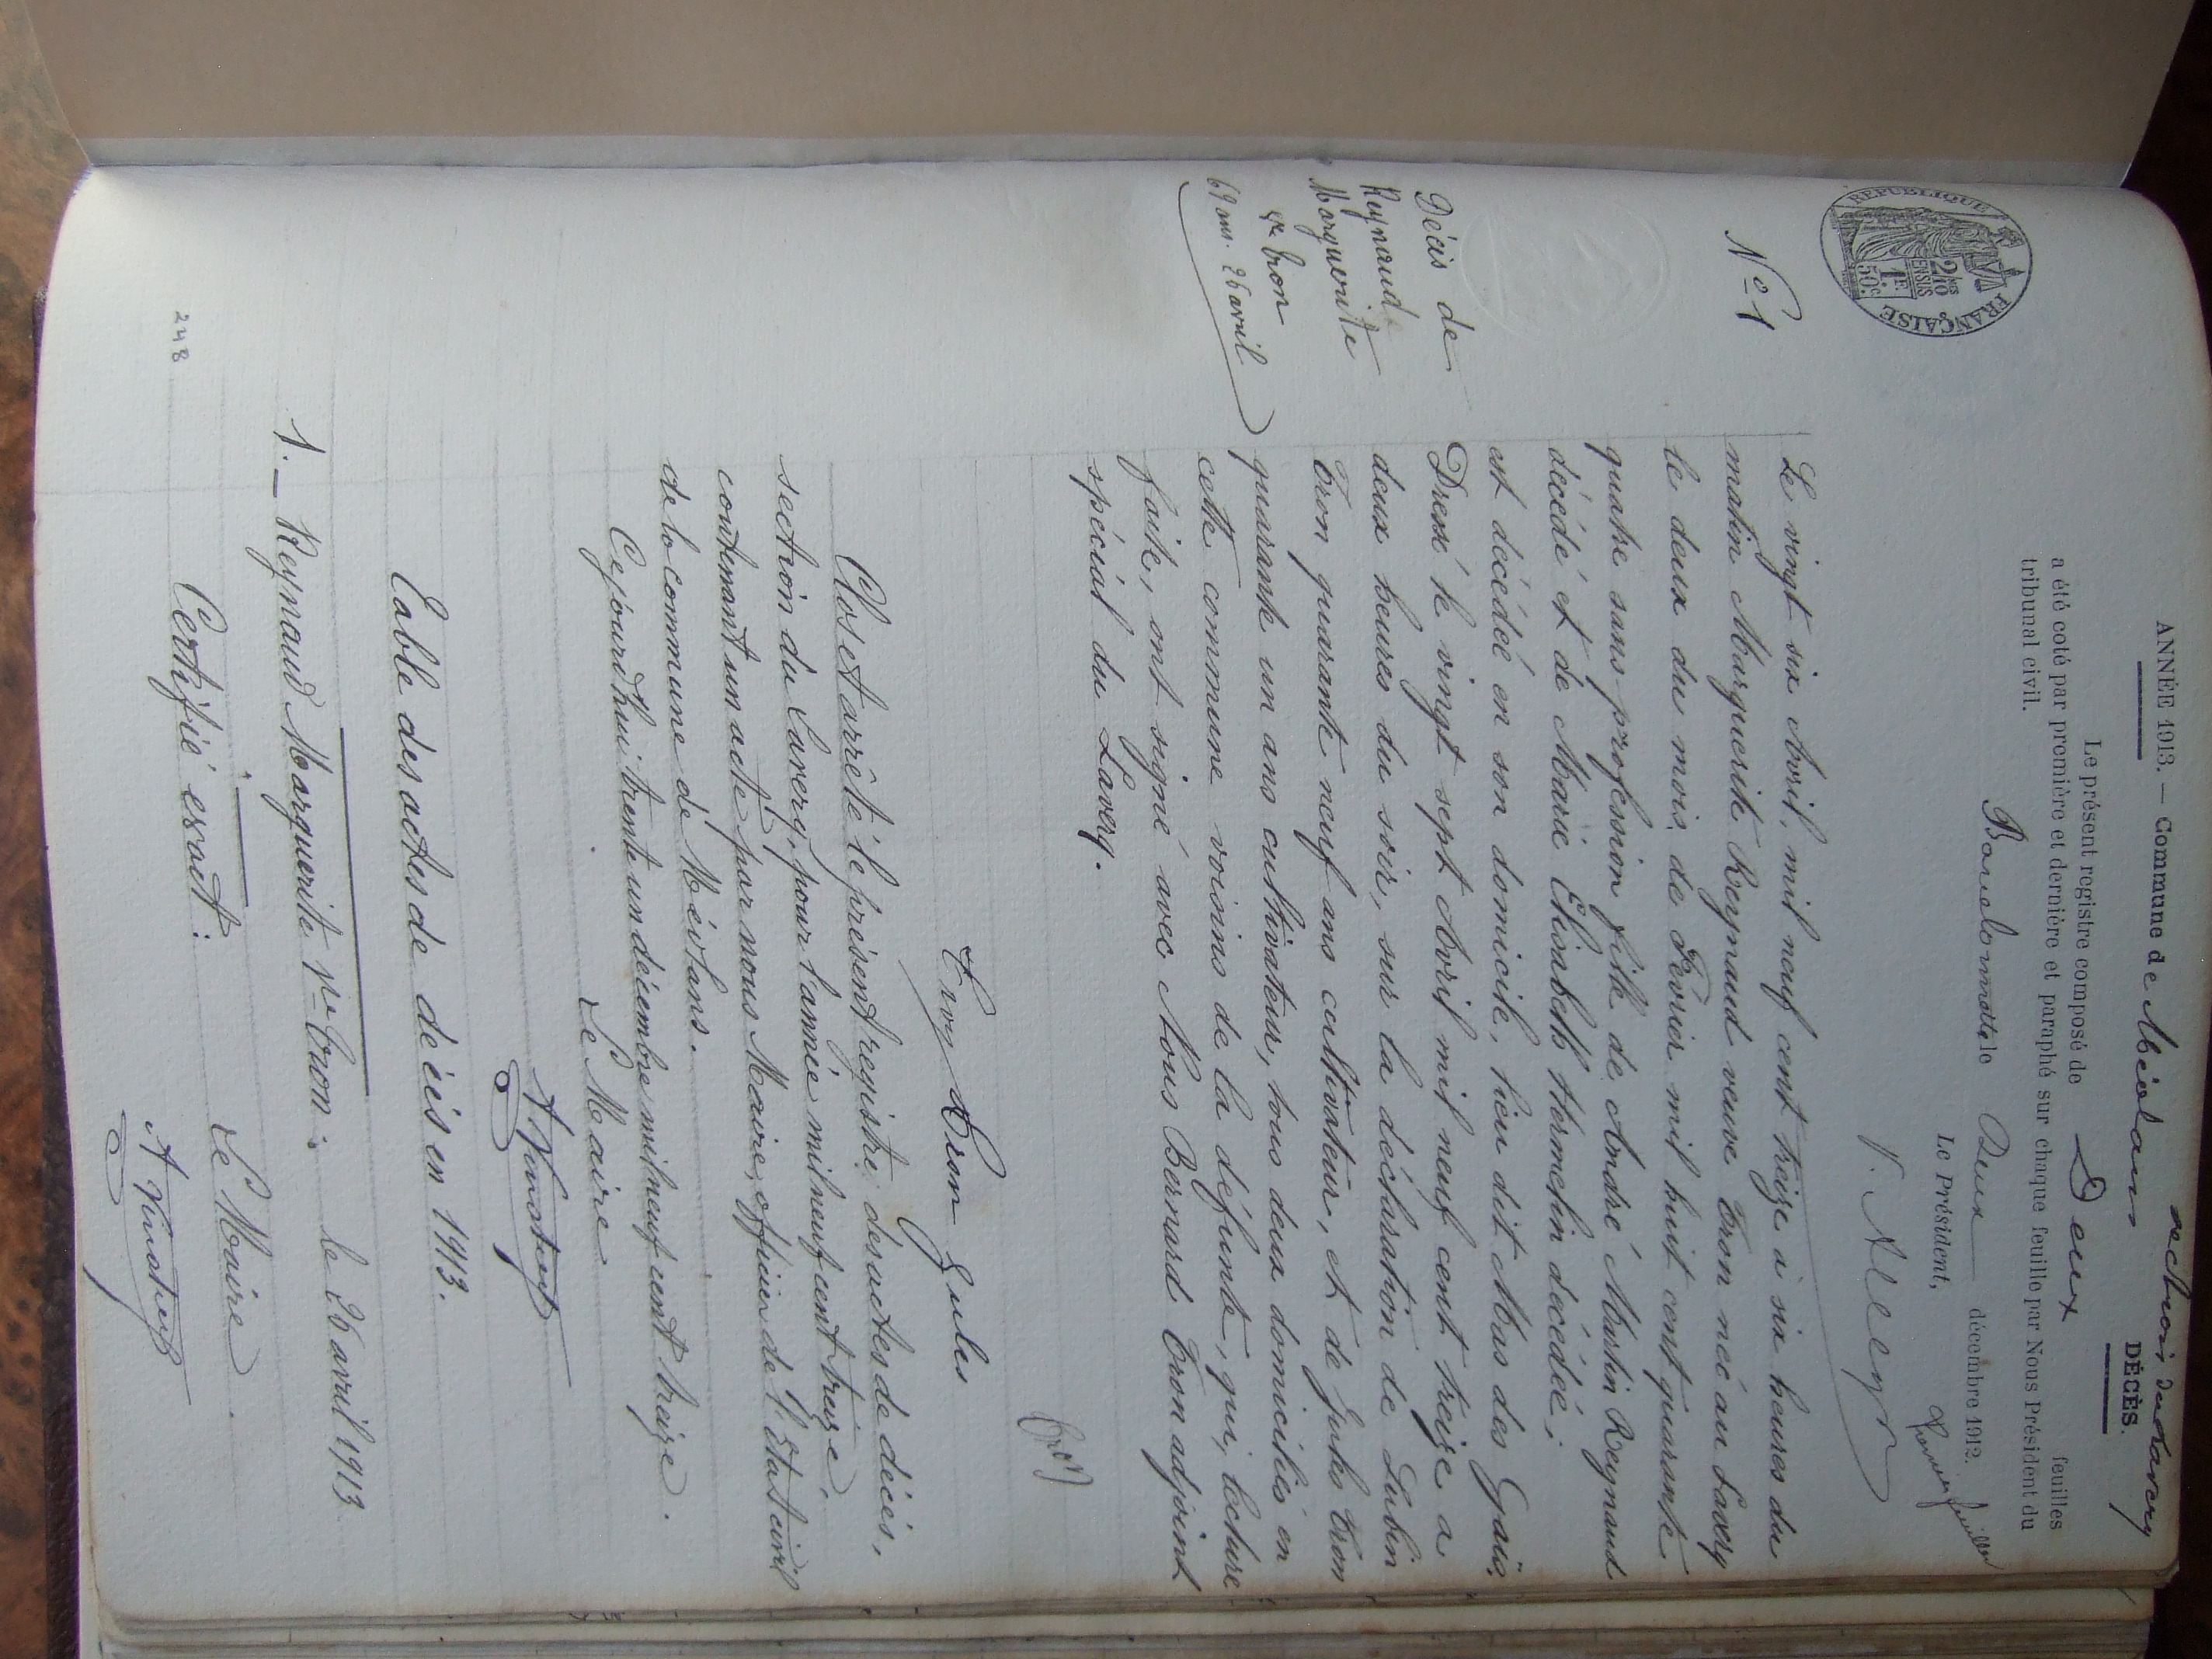 section du Laverq
ANNÉE 1913. — Commune de Méolans DÉCÈS.
Le présent registre composé de Deux feuilles
a été coté par première et dernière et paraphé sur chaque feuille par Nous Président du
tribunal civil.
Barcelonnette le Deux décembre 1912.
Le Président,
RÉPUBLIQUE FRANÇAISE
2/10 EN SUS
1F. 50c.
N° 1
Décès de
Reynaud
Marguerite
vve Tron
69 ans. 26 avril
Le vingt six Avril, mil neuf cent treize à six heures du
matin Marguerite Reynaud veuve Tron née au Laverq
le deux du mois de Février mil huit cent quarante
quatre sans profession fille de André Martin Reynaud
décédé et de Marie Elisabeth Hermelin décédée;
est décédée en son domicile, lieu dit Mas des Gais.
Dressé le vingt sept Avril mil neuf cent treize a
deux heures du soir, sur la déclaration de Lubin
Tron quarante neuf ans cultivateur, et de Jules Tron
quarante un ans cultivateur, tous deux domiciliés en
cette commune voisins de la défunte, qui, lecture
faite, ont signé avec Nous Bernard Tron adjoint
spécial du Laverq.
Tron
Tron Jules
Clos et arrêté le présent registre des actes de décès,
section du Laverq, pour l'année mil neuf cent treize,
contenant un acte par nous Maire, officier de l'Etat civil
de la commune de Méolans.
Cejourd'hui trente un décembre mil neuf cent treize.
Le Maire.
Table des actes de décès en 1913.
1. — Reynaud Marguerite vve Tron. le 26 avril 1913
Certifié exact: Le Maire.
248